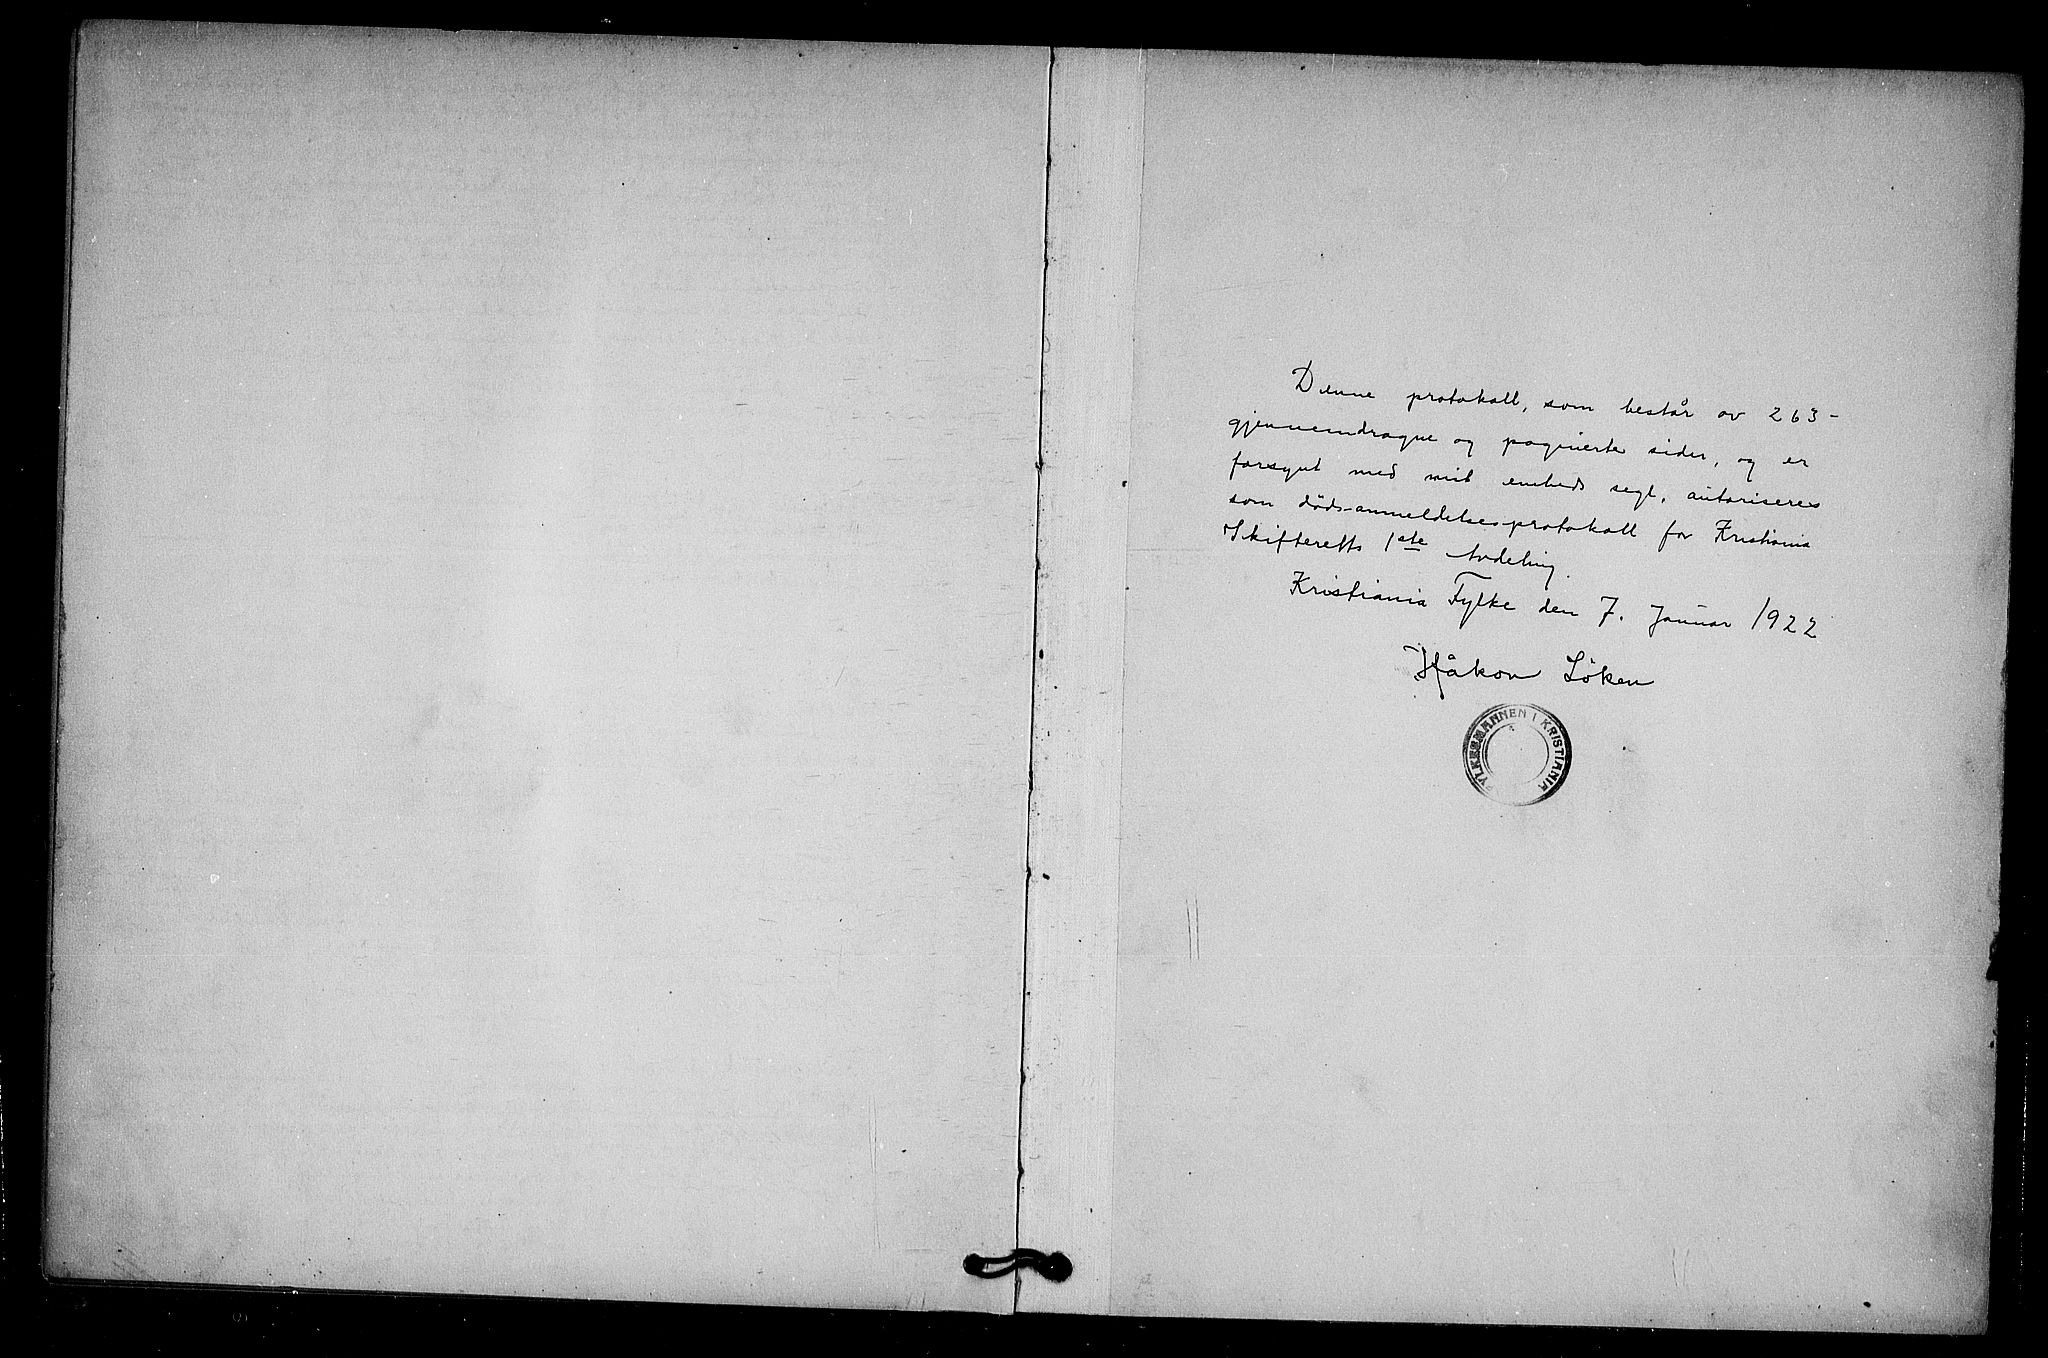 Denne protokoll, som består av 263-
gjennemdragne og paginerte sider, og er
forsynt med mit embeds segl, autoriseres
som dödsanmeldelsesprotokoll for Kristiania
Skifteretts 1ste Avdeling.
Kristiania Fylke den 7. Januar 1922
Håkon Löken
FYLKESMANNEN I KRISTIANIA